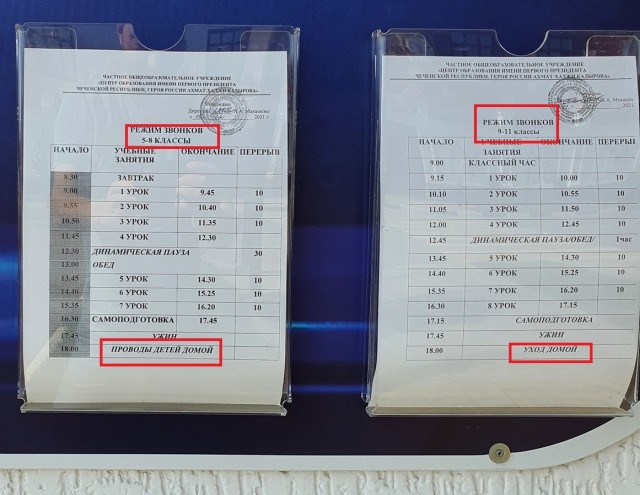 ЧАСТНОЕ ОБЩЕОБРАЗОВАТЕЛЬНОЕ УЧРЕЖДЕНИЕ
«ЦЕНТР ОБРАЗОВАНИЯ ИМЕНИ ПЕРВОГО ПРЕЗИДЕНТА
ЧЕЧЕНСКОЙ РЕСПУБЛИКИ, ГЕРОЯ РОССИИ АХМАТ-ХАДЖИ КАДЫРОВА»
2021 г
РЕЖИМ ЗВОНКОВ
5-8 КЛАССЫ
НАЧАЛО УЧЕБНЫЕ ЗАНЯТИЯ ОКОНЧАНИЕ ПЕРЕРЫВ
8.30 ЗАВТРАК
9.00 1 УРОК 9.45 10
9.55 2 УРОК 10.40 10
10.50 3 УРОК 11.35 10
11.45 4 УРОК 12.30
12.30 ДИНАМИЧЕСКАЯ ПАУЗА 30
13.00 ОБЕД
13.45 5 УРОК 14.30 10
14.40 6 УРОК 15.25 10
15.35 7 УРОК 16.20 10
16.30 САМОПОДГОТОВКА 17.45
17.45 УЖИН
18.00 ПРОВОДЫ ДЕТЕЙ ДОМОЙ
ЧАСТНОЕ ОБЩЕОБРАЗОВАТЕЛЬНОЕ УЧРЕЖДЕНИЕ
«ЦЕНТР ОБРАЗОВАНИЯ ИМЕНИ ПЕРВОГО ПРЕЗИДЕНТА
ЧЕЧЕНСКОЙ РЕСПУБЛИКИ, ГЕРОЯ РОССИИ АХМАТ-ХАДЖИ КАДЫРОВА»
2021
РЕЖИМ ЗВОНКОВ
9-11 классы
НАЧАЛО УЧЕБНЫЕ ЗАНЯТИЯ ОКОНЧАНИЕ ПЕРЕРЫВ
9.00 КЛАССНЫЙ ЧАС
9.15 1 УРОК 10.00 10
10.10 2 УРОК 10.55 10
11.05 3 УРОК 11.50 10
12.00 4 УРОК 12.45 10
12.45 ДИНАМИЧЕСКАЯ ПАУЗА/ОБЕД/ 1час
13.45 5 УРОК 14.30 10
14.40 6 УРОК 15.25 10
15.35 7 УРОК 16.20 10
16.30 8 УРОК 17.15
17.15 САМОПОДГОТОВКА
17.45 УЖИН
18.00 УХОД ДОМОЙ